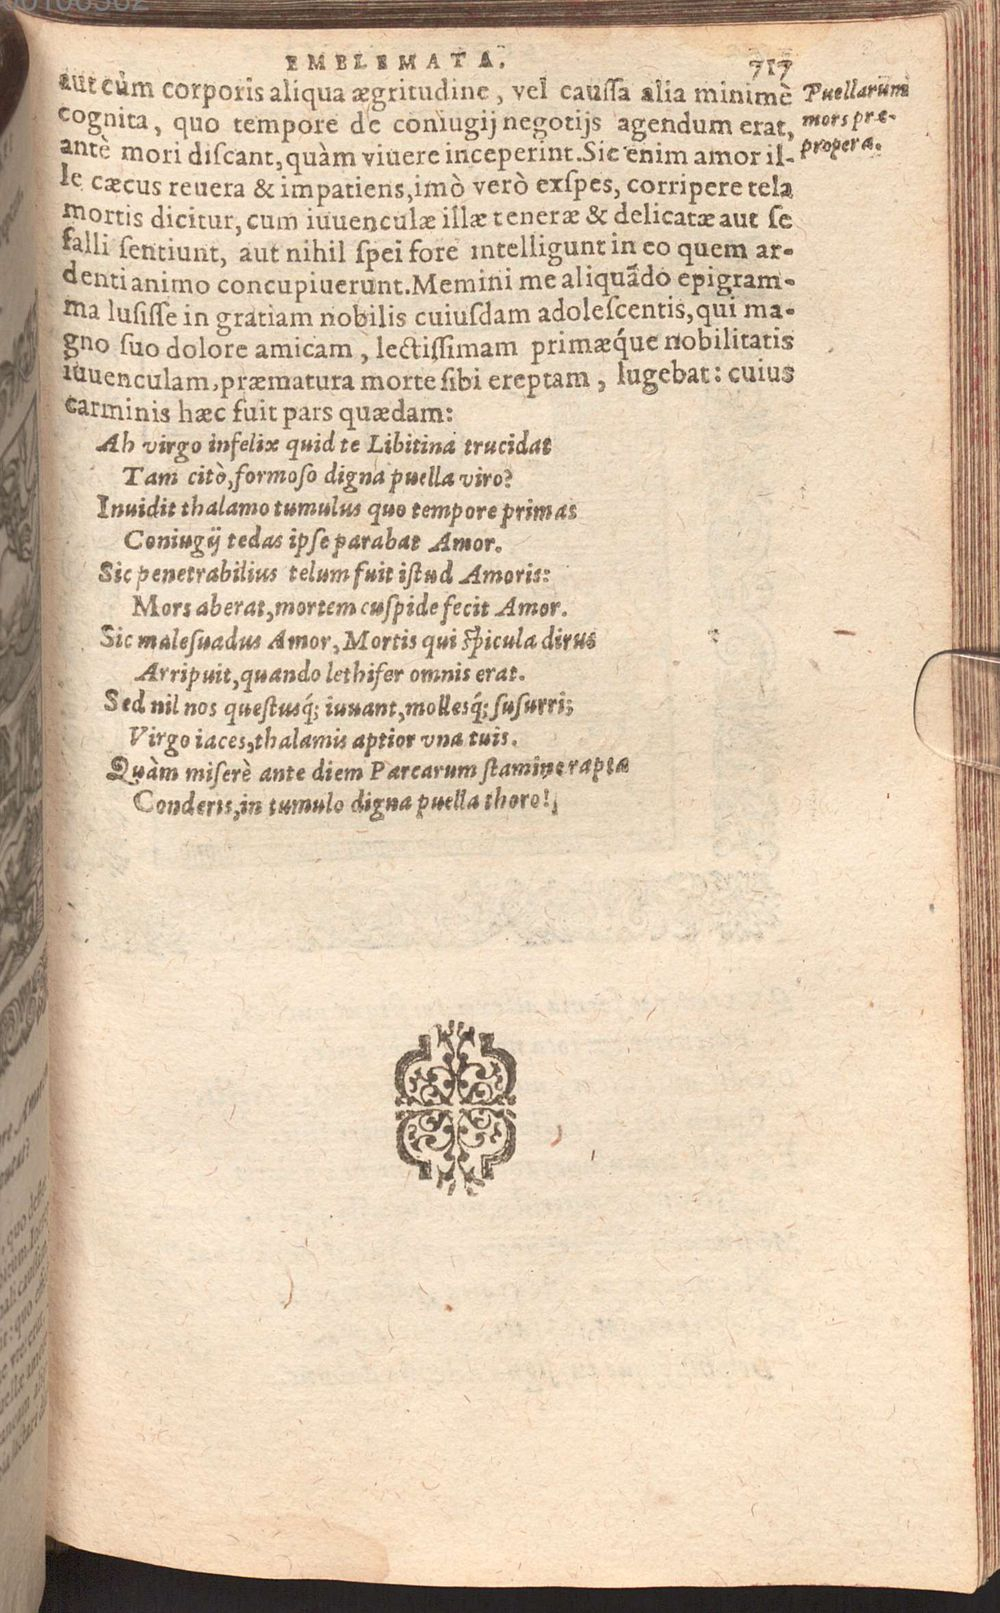 EMBLEMATA. 717
aut cùm corporis aliqua ægritudine, vel caussa alia minimè
cognita, quo tempore de coniugij negotijs agendum erat,
antè mori discant, quàm viuere inceperint. Sic enim amor il-
le cæcus reuera & impatiens, imò verò exspes, corripere tela
mortis dicitur, cum iuuenculæ illæ teneræ & delicatæ aut se
falli sentiunt, aut nihil spei fore intelligunt in eo quem ar-
denti animo concupiuerunt. Memini me aliquãdo epigram-
ma lusisse in gratiam nobilis cuiusdam adolescentis, qui ma-
gno suo dolore amicam, lectissimam primæq́ue nobilitatis
iuuenculam, præmatura morte sibi ereptam, lugebat: cuius
carminis hæc fuit pars quædam:
Puellarum
mors præ-
propera.
Ah virgo infelix quid te Libitina trucidat
Tam citò, formoso digna puella viro?
Inuidit thalamo tumulus quo tempore primas
Coniugij tedas ipse parabat Amor.
Sic penetrabilius telum fuit istud Amoris:
Mors aberat, mortem cuspide fecit Amor.
Sic malesuadus Amor, Mortis qui spicula dirus
Arripuit, quando lethifer omnis erat.
Sed nil nos questusq́; iuuant, mollesq́; susurri;
Virgo iaces, thalamis aptior vna tuis.
Quàm miserè ante diem Parcarum stamine rapta
Conderis, in tumulo digna puella thoro!